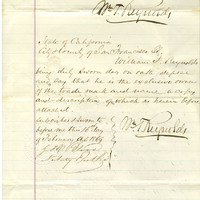 Wm T. Reynolds
State of California
City & County of San Francisco } SS
William T. Reynolds
being duly sworn doth on oath depose
and say that he is the exclusive owner
of the trade mark and name a copy
and description of which is herein before
attached.
Subscribed & sworn to
before me this 15 day } Wm T. Reynolds
of February A.D.
Notary Public